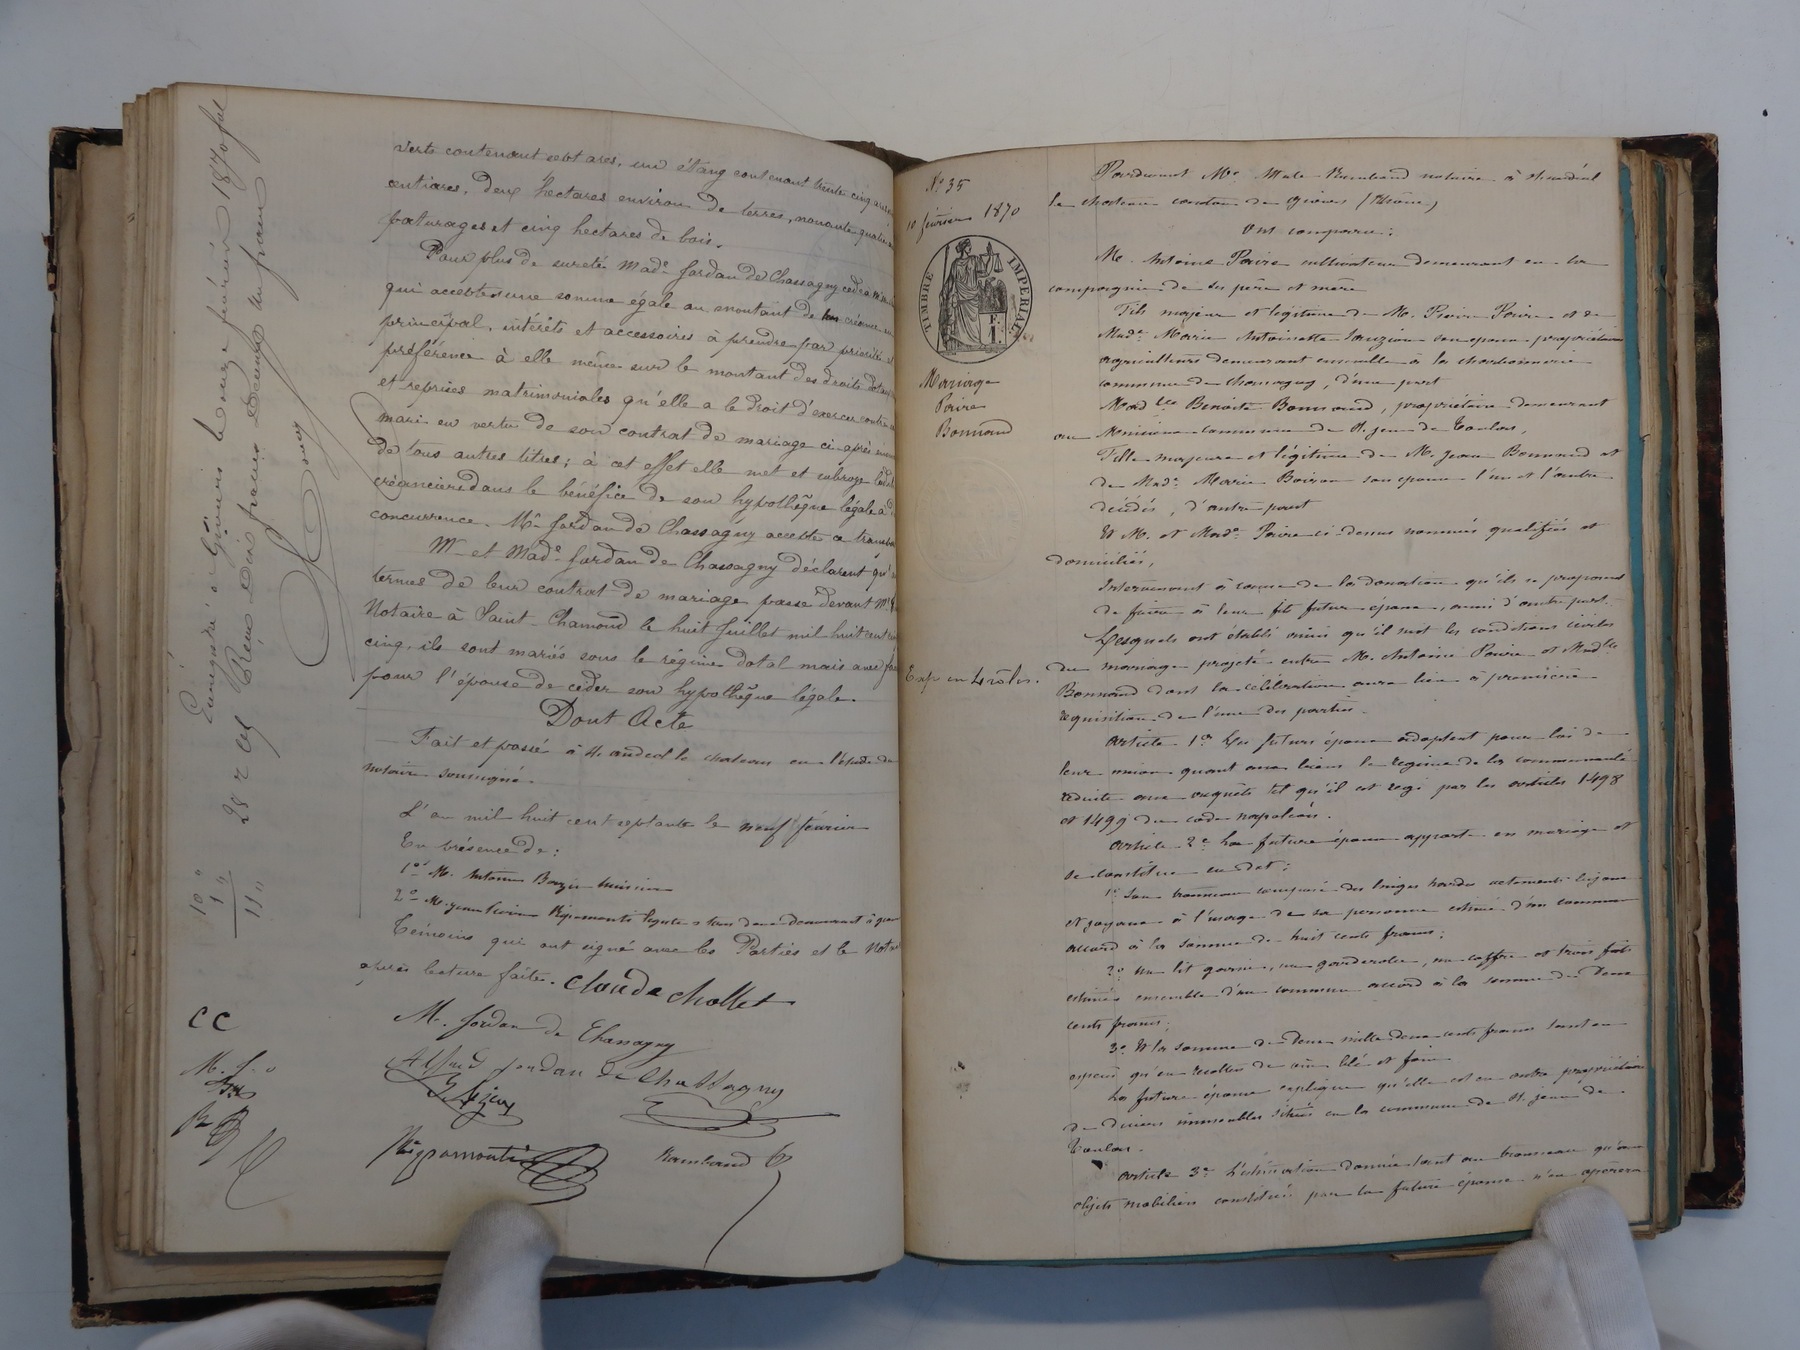 verte contenant sept ares, un étang contenant trente cinq ares
centiares, deux hectares environ de terres, nonante quatre
paturages et cinq hectares de bois.
Pour plus de sureté Made Jordan de Chassagny cède à M.
qui accepte une somme égale au montant de créance en
principal, intérêts et accessoires à prendre par priorité et
préférence à elle même sur le montant des droits dotaux
et reprises matrimoniales qu'elle a le droit d'exercer contre
mari en vertu de son contrat de mariage ci-après
de tous autres titres; à cet effet elle met et subroge
créancière dans le bénéfice de son hypothèque légale à
concurrence. Mr Jordan de Chassagny accepte ce transport
Mr et Made Jordan de Chassagny déclarent qu'
termes de leur contrat de mariage passé devant Mr
Notaire à Saint-Chamond le huit Juillet mil huit cent
cinq, ils sont mariés sous le régime dotal mais avec
pour l'épouse de céder son hypothèque légale.
Dont Acte
Fait et passé à St andéol le chateau en l'étude du
notaire soussigné.
L'an mil huit cent septante le neuf février
En présence de:
1er M. Antoine
2e M. Ripamonti demeurant à
Témoins qui ont signé avec les Parties et le Notaire
après lecture faite. Claude Chollet
M. Jordan de Chassagny
Alfred Jordan de Chassagny
Ripamonti Rambaud
CC
M. J.
Enregistré à Givors le onze février 1870 fol
28 r c4 Reçu dix francs Décime un franc
10 "
1 "
11 "
No 35
10 février 1870
TIMBRE IMPERIAL
1 F.
Mariage
Poire
Bonnand
Exp en 4 rôles.
Pardevant Me Rambaud notaire à St andéol
le chateau canton de Givors (Rhône)
Ont comparu:
M. Antoine Poire cultivateur demeurant en la
compagnie de ses père et mère
Fils majeur et légitime de M. Pierre Poire et de
Made Marie Antoinette son épouse propriétaires
agriculteurs demeurant ensemble à la charbonnerie
commune de Chassagny, d'une part
Madlle Benoite Bonnand, propriétaire demeurant
au commune de St. jean de Toulas,
Fille majeure et légitime de M. Jean Bonnand et
de Made Marie Boiron son épouse l'un et l'autre
décédés, d'autre part
Et M. et Made Poire ci-dessus nommés qualifiés et
domiciliés,
Intervenant à cause de la donation qu'ils se proposent
de faire à leur fils futur époux, aussi d'autre part.
Lesquels ont établi ainsi qu'il suit les conditions civiles
du mariage projeté entre M. Antoine Poire et Madlle
Bonnand dont la célébration aura lieu à première
réquisition de l'une des parties.
Article 1er Les futurs époux adoptent pour loi de
leur union quant aux biens le régime de la communauté
réduite aux acquêts tel qu'il est régi par les articles 1498
et 1499 du code napoléon.
Article 2e La future épouse apporte en mariage et
se constitue en dot:
1o Son trousseau composé des linges hardes vêtements bijoux
et joyaux à l'usage de sa personne estimé d'un commun
accord à la somme de huit cents francs;
2o Un lit garni, une garderobe, un coffre et trois
estimés ensemble d'un commun accord à la somme de deux
cents francs;
3o Et la somme de deux mille deux cents francs tant en
espèces qu'en récoltes de vin blé et foin
La future épouse explique qu'elle est en outre propriétaire
de divers immeubles situés en la commune de St. jean de
Toulas.
Article 3e L'estimation donnée tant au trousseau qu'aux
objets mobiliers constitués par la future épouse n'en opérera